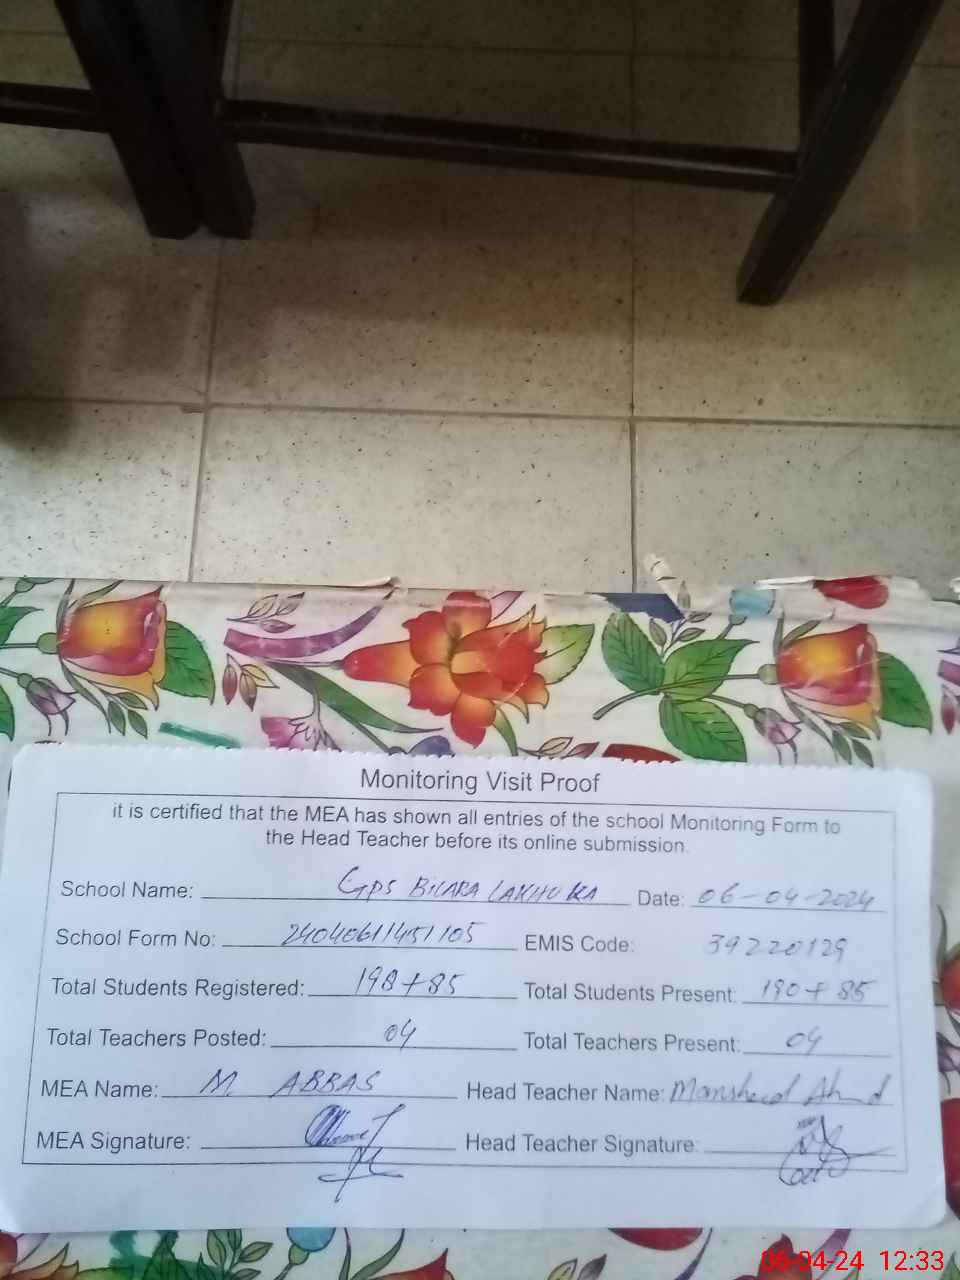 Monitoring Visit Proof
it is certified that the MEA has shown all entries of the school Monitoring Form to
the Head Teacher before its online submission.
School Name: GPS BHARA LAKHU KA Date: 06-04-2024
School Form No: 24040611451105 EMIS Code: 39220129
Total Students Registered: 198+85 Total Students Present: 190+85
Total Teachers Posted: 04 Total Teachers Present: 04
MEA Name: M. ABBAS Head Teacher Name:
MEA Signature: Head Teacher Signature:
06-04-24 12:33